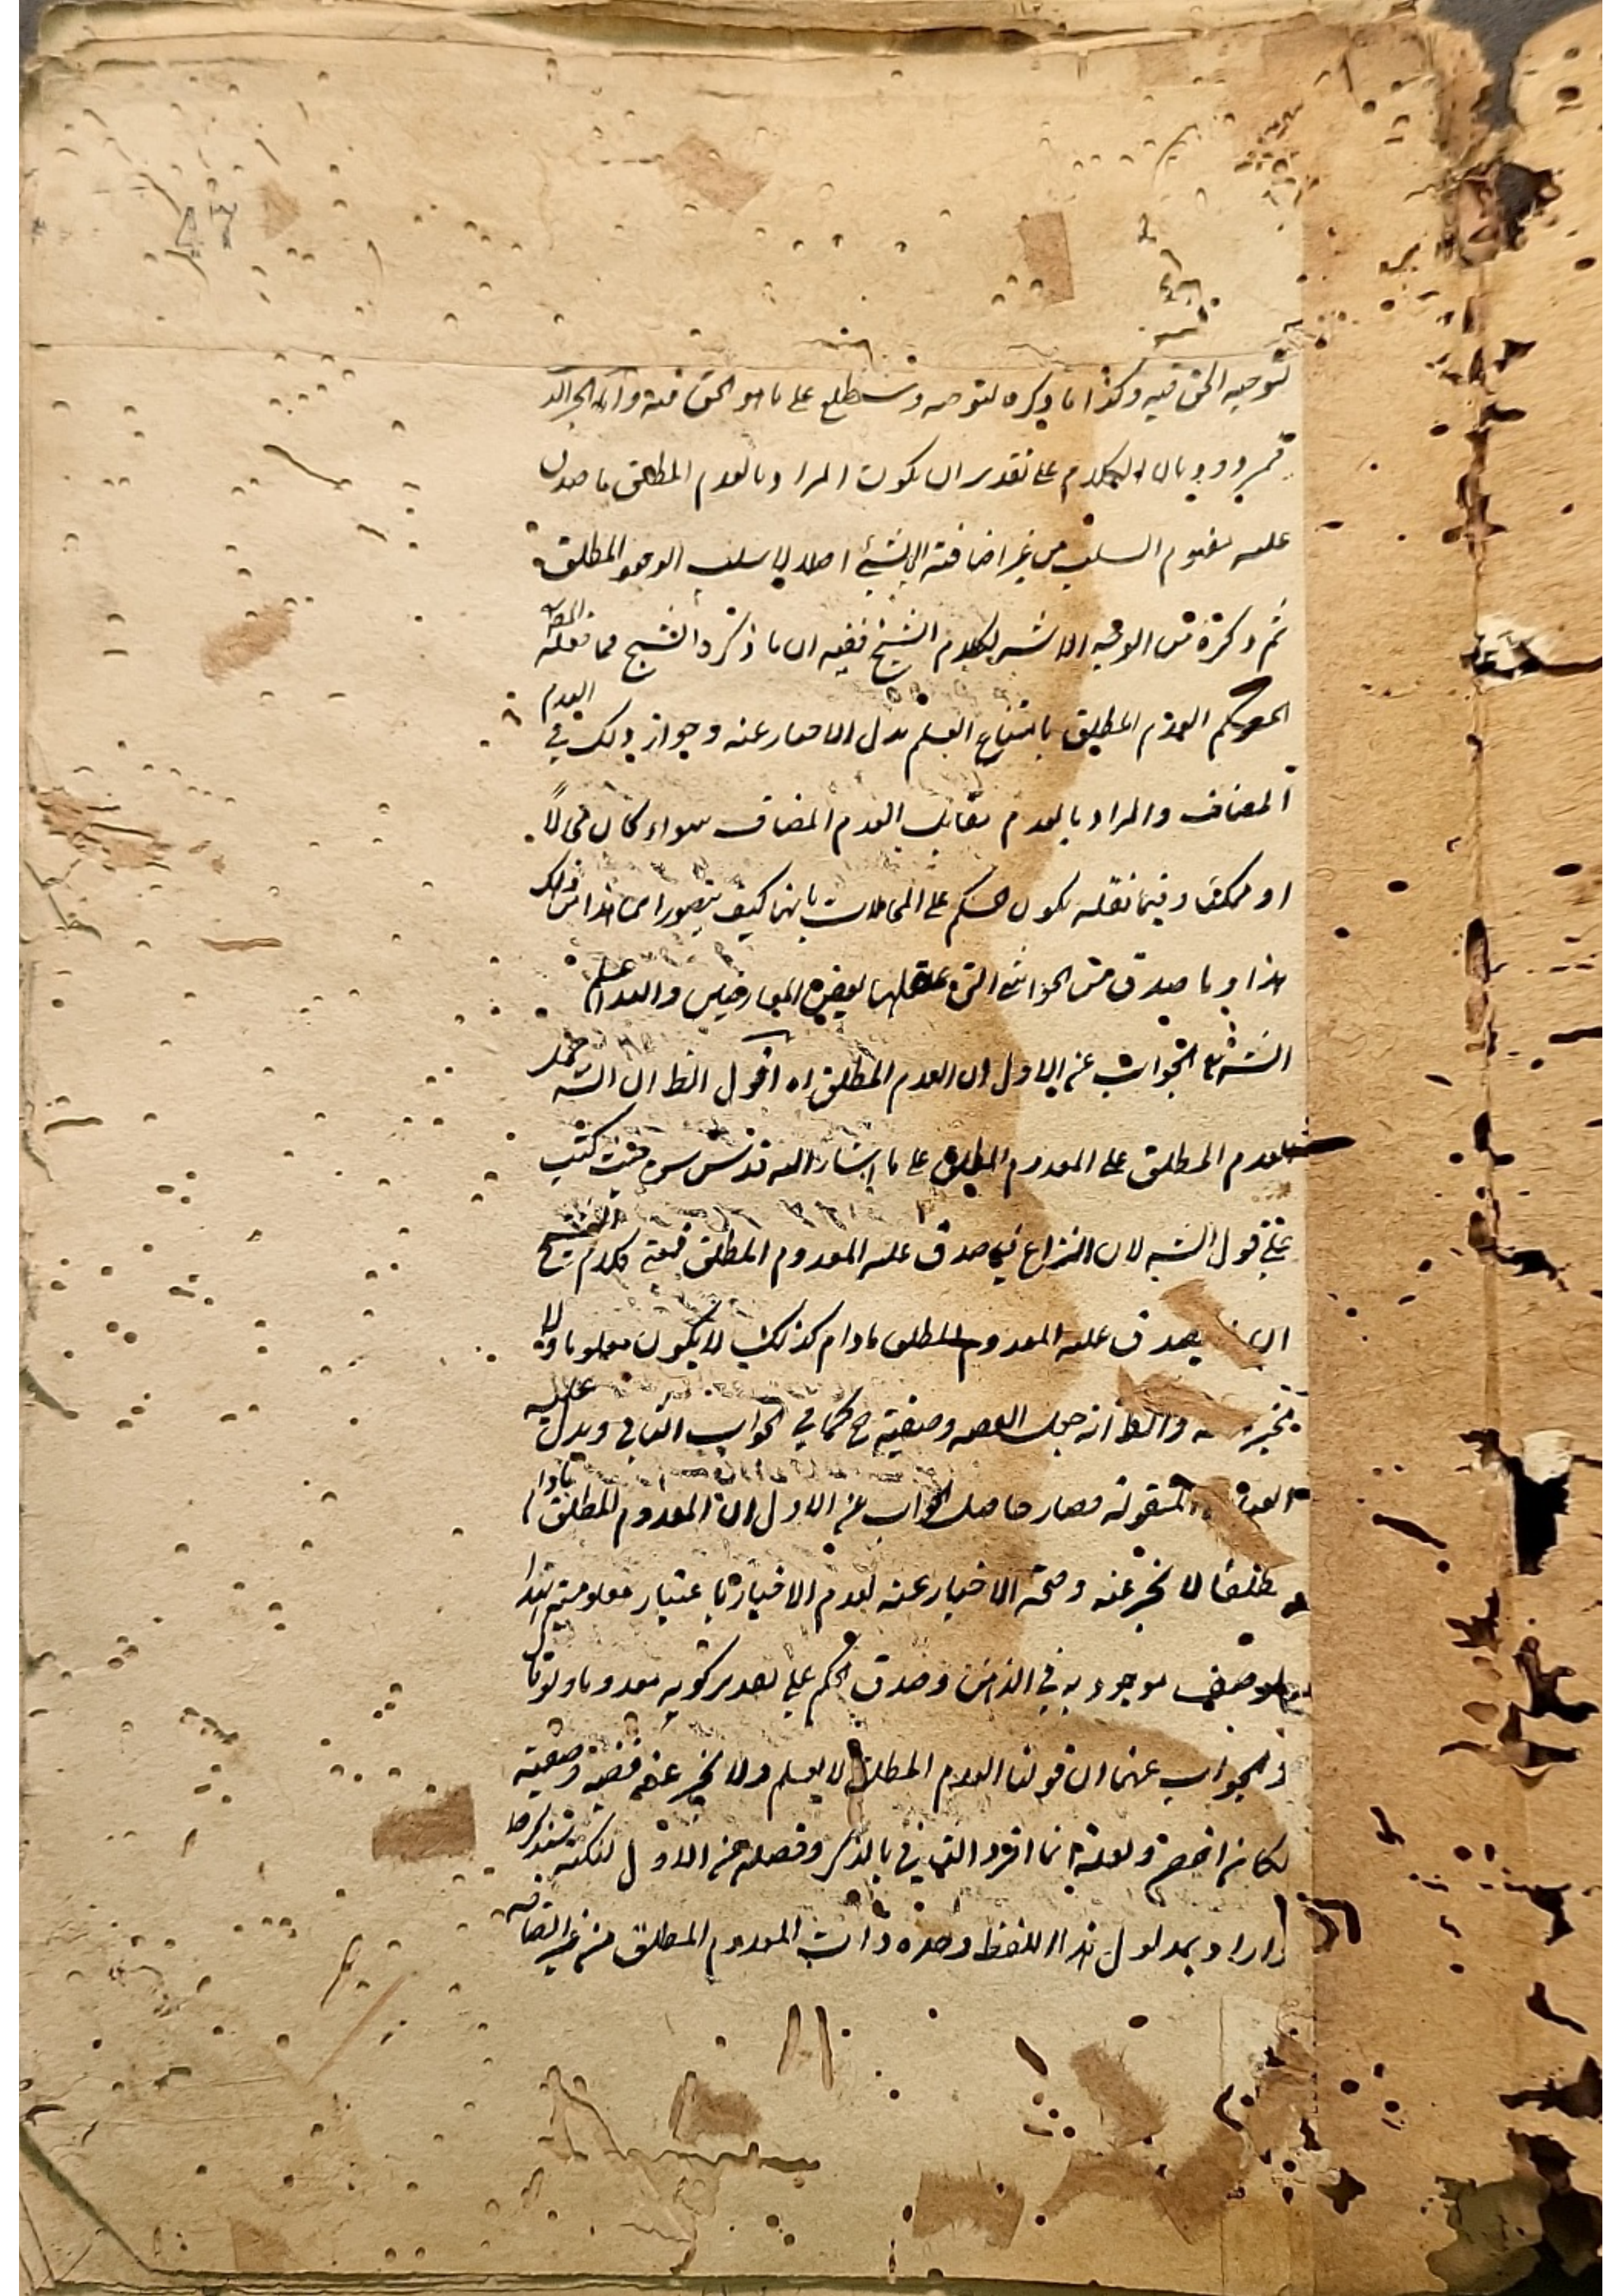 لتوجيه الحق فيه وكذا ما ذكره لتوجيه وستطلع على ما هو الحق فيه وانه
بان الكلام على تقدير ان يكون المراد بالعدم المطلق ما صدق
عليه مفهوم السلب من غير اضافته الى شئ اصلا لا سلب الوجود المطلق
ثم ذكره من الوجه الاشهر لكلام الشيخ ففيه ان ما ذكره الشيخ مما نقله المص
الحكم العدم المطلق بامتناع العلم بدل الاخبار عنه وجواز ذلك في العدم
المضاف والمراد بالعدم مقابل العدم المضاف سواء كان محالاً
او ممكنا وفيما نقله يكون الحكم على المحالات بانها كيف يتصور اين هذا من ذلك
هذا وما صدق من الحواشى التى علقها بعض المعارضين والله اعلم
الجواب عن الاول ان العدم المطلق اه اقول الظ ان الش حمل
العدم المطلق على المعدوم المطلق على ما اشار اليه قدس سره حيث كتب
على قول الش لان النزاع فيما صدق عليه المعدوم المطلق فمعنى كلام الشيخ
يصدق عليه المعدوم المطلق ما دام كذلك لا يكون معلوما ولا
والظ انه جعل القضية وصفية ح كما في الجواب الثاني ويدل عليه
المنقولة فصار حاصل الجواب عن الاول ان المعدوم المطلق ما دام
مطلقا لا يخبر عنه وصحة الاخبار عنه بعدم الاخبار باعتبار معلوميته بهذا
الوصف موجود به في الذهن وصدق الحكم على تقدير كونه معدوما ولو قا
والجواب عنهما ان قولنا العدم المطلق لا يعلم ولا يخبر عنه قضية وصفية
لكان اخصر ولعله انما افرد الثاني بالذكر وفصله عن الاول لنكتة ستذكرها
واراد بمدلول هذا اللفظ وحده ذات المعدوم المطلق من غير اتصافه